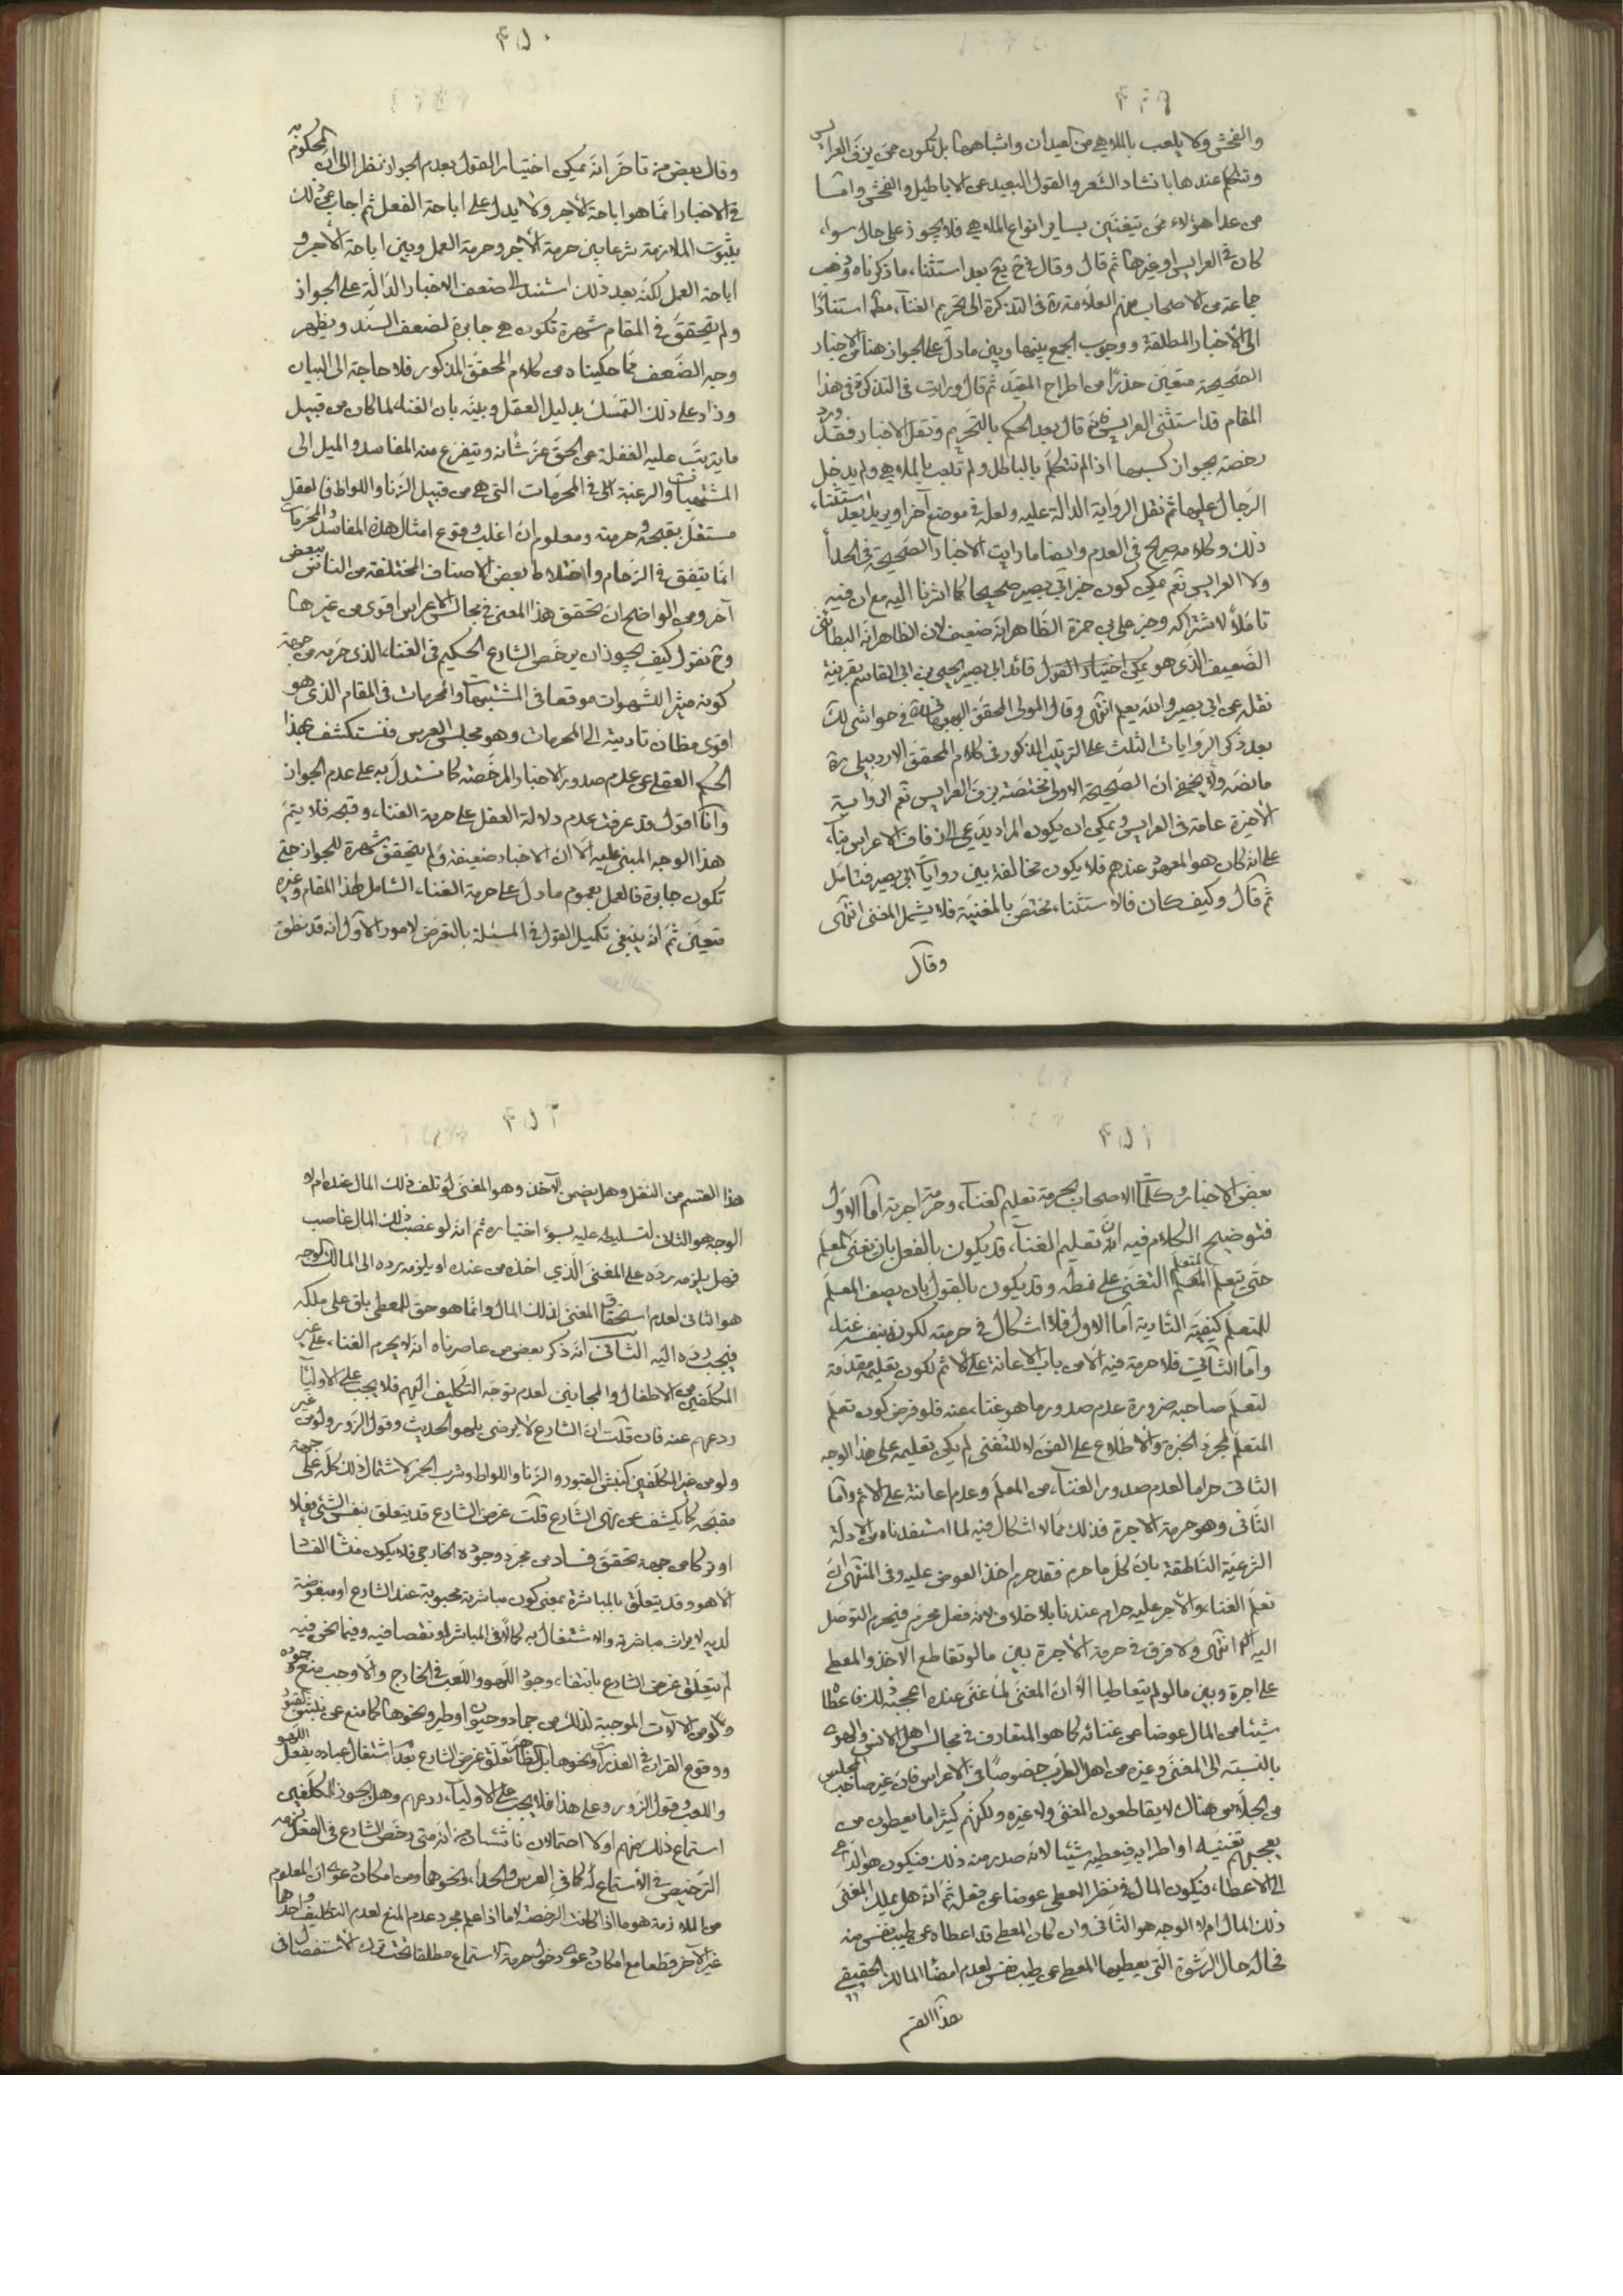 ٤٤٩
والفحش ولا يلعب بالملاهي من العيدان واشباهها بل تكون ممن يزف العرايس
وتتكلم عندها بانشاد الشعر والقول البعيد عن الاباطيل والفحش واما
من عدا هؤلاء ممن يتغنين بساير انواع الملاهي فلا يجوز على حال سواء
كان في العرايس او غيرها ثم قال وقال في يخ بعد استثناء ما ذكرناه وذهب
جماعة من الاصحاب منهم العلامة ره في التذكرة الى تحريم الغناء مطلقا استنادا
الى الأخبار المطلقة ووجوب الجمع بينها وبين ما دل على الجواز هنا من الاخبار
الصحيحة متعين حذرا من اطراح المقيد ثم قال ورايت في التذكرة في هذا
المقام قد استثنى العرايس فانه قال بعد الحكم بالتحريم ونقل الاخبار فقد ورد
رخصة بجواز كسبها اذا لم تتكلم بالباطل ولم تلعب بالملاهي ولم يدخل
الرجال عليها ثم نقل الرواية الدالة عليه ولعله في موضع آخر او يريد بعد استثناء
ذلك وكلامه صريح في العدم وايضا ما رايت الاخبار الصحيحة في الحدأ
ولا العرايس نعم يمكن كون خبر ابي بصير صحيحا كما اشرنا اليه مع ان فيه
تاملا لاشتراكه وخبر علي بن حمزة الظاهر انه ضعيف لان الظاهر انه البطائني
الضعيف الذي هو يمكن اختيار القول قائد ابي بصير يحيى بن ابي القاسم بقرينة
نقله عن ابي بصير والله يعلم انتهى وقال المولى المحقق البهبهاني ره في حواشي لك
بعد ذكر الروايات الثلث على الترتيب المذكور في كلام المحقق الاردبيلي ره
ما نصه ولا يخفى ان الصحيحة الاولى مختصة بزف العرايس نعم الرواية
الأخيرة عامة في العرايس ويمكن ان يكون المراد يدعى الى زفاف الاعراس بناء
على انه كان هو المعهود عندهم فلا يكون مخالفة بين روايات ابي بصير فتامل
ثم قال وكيف كان فالاستثناء مختص بالمغنية فلا يشمل المغني انتهى
وقال
٤٥٠
وقال بعض من تاخر انه يمكن اختيار القول بعدم الجواز نظرا الى ان المحكوم به
في الاخبار انما هو اباحة الأجر ولا يدل على اباحة الفعل ثم اجاب عن ذلك
بثبوت الملازمة شرعا بين حرمة الأجر وحرمة العمل وبين اباحة الأجر و
اباحة العمل لكنه بعد ذلك استند الى ضعف الاخبار الدالة على الجواز
ولم يتحقق في المقام شهرة تكون هي جابرة لضعف السند ويظهر
وجه الضعف مما حكيناه من كلام المحقق المذكور فلا حاجة الى البيان
وزاد على ذلك التمسك بدليل العقل وبينه بان الغناء لما كان من قبيل
ما يترتب عليه الغفلة عن الحق عز شانه ويتفرع منه المفاسد والميل الى
المشتهيات والرغبة الى المحرمات التي هي من قبيل الزنا واللواط فالعقل
مستقل بقبحه وحرمته ومعلوم ان اغلب وقوع امثال هذه المفاسد والمحرمات
انما يتفق في الزحام واختلاط بعض الاصناف المختلفة من الناس ببعض
آخر ومن الواضح ان تحقق هذا المعنى في مجالس الاعراس اقوى من غيرها
وح نقول كيف يجوز ان يرخص الشارع الحكيم في الغناء الذي حرمه من جهة
كونه مثيرا للشهوات موقعا في المشتبهات والمحرمات في المقام الذي هو
اقوى مظان تاديته الى المحرمات وهو مجلس العرس فنستكشف بهذا
الحكم العقلي عن عدم صدور الاخبار المرخصة كما نستدل به على عدم الجواز
وانا اقول قد عرفت عدم دلالة العقل على حرمة الغناء وقبحه فلا يتم
هذا الوجه المبني عليه الا ان الاخبار ضعيفة ولم يتحقق شهرة للجواز حتى
تكون جابرة فالعمل بعموم ما دل على حرمة الغناء الشامل لهذا المقام وغيره
متعين ثم انه ينبغي تكميل القول في المسئلة بالتعرض لامور الأول انه قد نطق
٤٥١
بعض الاخبار وكلمات الاصحاب بحرمة تعليم الغناء وحرمة اجرته اما الاول
فتوضيح الكلام فيه ان تعليم الغناء قد يكون بالفعل بان يغني المعلم
حتى يتعلم المتعلم التغني على نمطه وقد يكون بالقول بان يصف المعلم
للمتعلم كيفية التادية اما الاول فلا اشكال في حرمته لكونه بنفسه غناء
واما الثاني فلا حرمة فيه الا من باب الاعانة على الاثم لكون تعليمه مقدمة
لتعلم صاحبه ضرورة عدم صدور ما هو غناء عنه فلو فرض كون تعلم
المتعلم لمجرد الخبرة والاطلاع على الفن لا للتغني لم يكن تعليمه على هذا الوجه
الثاني حراما لعدم صدور الغناء من المعلم وعدم اعانته على الاثم واما
الثاني وهو حرمة الاجرة فذلك مما لا اشكال فيه لما استفدناه من الادلة
الشرعية الناطقة بان كل ما حرم فقد حرم اخذ العوض عليه وفي المنتهى ان
تعلم الغناء والأجر عليه حرام عندنا بلا خلاف لانه فعل محرم فيحرم التوصل
اليه انتهى ولا فرق في حرمة الأجرة بين ما لو تقاطع الآخذ والمعطي
على اجرة وبين ما لو لم يتعاطيا الا ان المغني لما غنى عنده اعجبه ذلك فاعطاه
شيئا من المال عوضا عن غنائه كما هو المتعارف في مجالس اهل الانس والهوى
بالنسبة الى المغني وغيره من اهل الطرب خصوصا في الاعراس فان غير صاحب المجلس
من الجلاس هناك لا يقاطعون المغني ولا غيره ولكنهم كثيرا ما يعطون من
يعجبهم تغنيه او اطرابه فيعطيه شيئا لانه صدر منه ذلك فيكون هو الداعي
الى الاعطاء فيكون المال في نظر المعطي عوضا عن فعله ثم انه هل يملك المغني
ذلك المال ام لا الوجه هو الثاني وان كان المعطي قد اعطاه عن طيب نفس منه
فحاله حال الرشوة التي يعطيها المعطي عن طيب نفس لعدم امضاء المالك الحقيقي
هذا القسم
٤٥٢
هذا القسم من النقل وهل يضمن الآخذ وهو المغني لو تلف ذلك المال عنده ام لا
الوجه هو الثاني لتسليطه عليه بسوء اختياره ثم انه لو غصب ذلك المال غاصب
فهل يلزمه رده على المغني الذي اخذ من عنده او يلزمه رده الى المالك الوجه
هو الثاني لعدم استحقاق المغني لذلك المال وانما هو حق للمعطي باق على ملكه
فيجب رده اليه الثاني انه ذكر بعض من عاصرناه انه لا يحرم الغناء على غير
المكلفين من الاطفال والمجانين لعدم توجه التكليف اليهم فلا يجب على الاولياء
ردعهم عنه فان قلت ان الشارع لا يرضى بلهو الحديث وقول الزور ولو من غير
ولو من غير المكلفين كنبش القبور والزنا واللواط وشرب الخمر لاشتمال ذلك كله على جهة
مقبحة كما يكشف عن نهي الشارع قلت غرض الشارع قد يتعلق بنفس الشيء فعلا
او تركا من جهة تحقق فساد من مجرد وجوده الخارجي فلا يكون منشأ الفساد
الا هو وقد يتعلق بالمباشرة بمعنى كون مباشرته محبوبة عند الشارع او مبغوضة
لديه لايراث مباشرته والاشتغال به كمالا في المباشر او نقصا فيه وفيما نحن فيه
لم يتعلق غرض الشارع بانتفاء وجود اللهو واللعب في الخارج والا وجب منع وجوده
ولو من الآلات الموجبة لذلك من جماد وحيوان او طير ونحوها كما منع عن نبش القبور
ووقوع القران في العذرات ونحوها بل الظاهر تعلق غرض الشارع بعدم اشتغال عباده بفعل اللهو
واللعب وقول الزور وعلى هذا فلا يجب على الاولياء ردعهم وهل يجوز للمكلفين
استماع ذلك منهم او لا احتمالان ناشئان من انه متى رخص الشارع في الفعل لزمه
الترخيص في الأستماع له كما في العرس والحدأ ونحوها ومن امكان دعوى ان المعلوم
من الملازمة هو ما اذا كانت الرخصة لا ما اذا علم مجرد عدم المنع لعدم التكليف واحدها
غير الآخر قطعا مع امكان دعوى دخول حرمة الاستماع مطلقا تحت ترك الأستفصال في